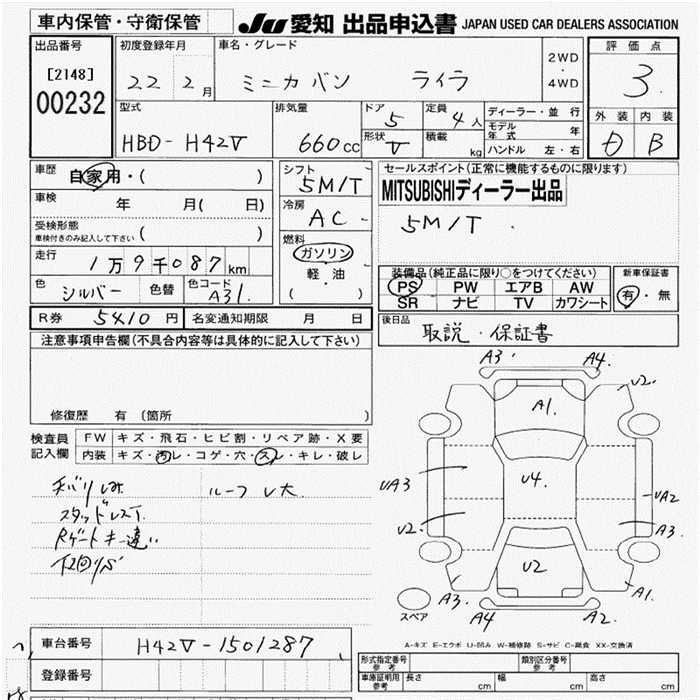 車内保管・守衛保管
JU 愛知 出品申込書 JAPAN USED CAR DEALERS ASSOCIATION
出品番号
[2148]
00232
初度登録年月
22 2月
車名・グレード
ミニカバン ライラ
2WD
・
4WD
評価点
3
外装 内装
D B
型式
HBD-H42V
排気量
660cc
ドア
5
形状
V
定員
4人
積載
kg
ディーラー・並行
モデル年式 年
ハンドル 左・右
車歴
自家用・( )
車検
年 月( 日)
受検形態
車検付きのみ記入して下さい ( )
走行
1万9千087km
色
シルバー
色替
色コード
A31
シフト
5M/T
冷房
AC
燃料
ガソリン
軽・油
( )
セールスポイント(正常に機能するものに限ります)
MITSUBISHIディーラー出品
5M/T
装備品(純正品に限り○をつけてください)
PS PW エアB AW
SR ナビ TV カワシート
新車保証書
有・無
R券 5410円 名変通知期限 月 日
後日品
取説・保証書
注意事項申告欄(不具合内容等は具体的に記入して下さい)
修復歴 有(箇所
検査員記入欄
FW キズ・飛石・ヒビ割・リペア跡・X要
内装 キズ・汚レ・コゲ・穴・スレ・キレ・破レ
ルーフ U大
スタッドレスT
Rゲートキー違い
A3 A4
U2
A1
UA3
U4
UA2
U2
A3
U2
A3
A4
A2
A1
スペア
A-キズ E-エクボ U-凹み W-補修跡 S-サビ C-腐食 XX-交換済
車台番号 H42V-1501287
登録番号
形式指定番号 参考
類別区分番号 参考
車庫証明用 参考 長さ cm 幅 cm 高さ cm